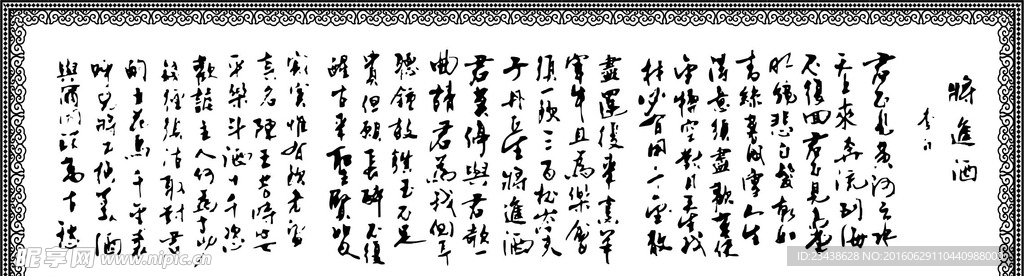 將進酒
李白
君不見黃河之水
天上來奔流到海
不復回君不見高堂
明鏡悲白髮朝如
青絲暮成雪人生
得意須盡歡莫使
金樽空對月天生我
材必有用千金散
盡還復來烹羊
宰牛且為樂會
須一飲三百杯岑夫
子丹丘生將進酒
君莫停與君歌一
曲請君為我側耳
聽鐘鼓饌玉不足
貴但願長醉不復
醒古來聖賢皆
寂寞惟有飲者留
其名陳王昔時宴
平樂斗酒十千恣
歡謔主人何為言少
錢徑須沽取對君
酌五花馬千金裘
呼兒將出換美酒
與爾同銷萬古愁
昵享网 www.nipic.cn
ID:23438628 NO:20160629110440988003